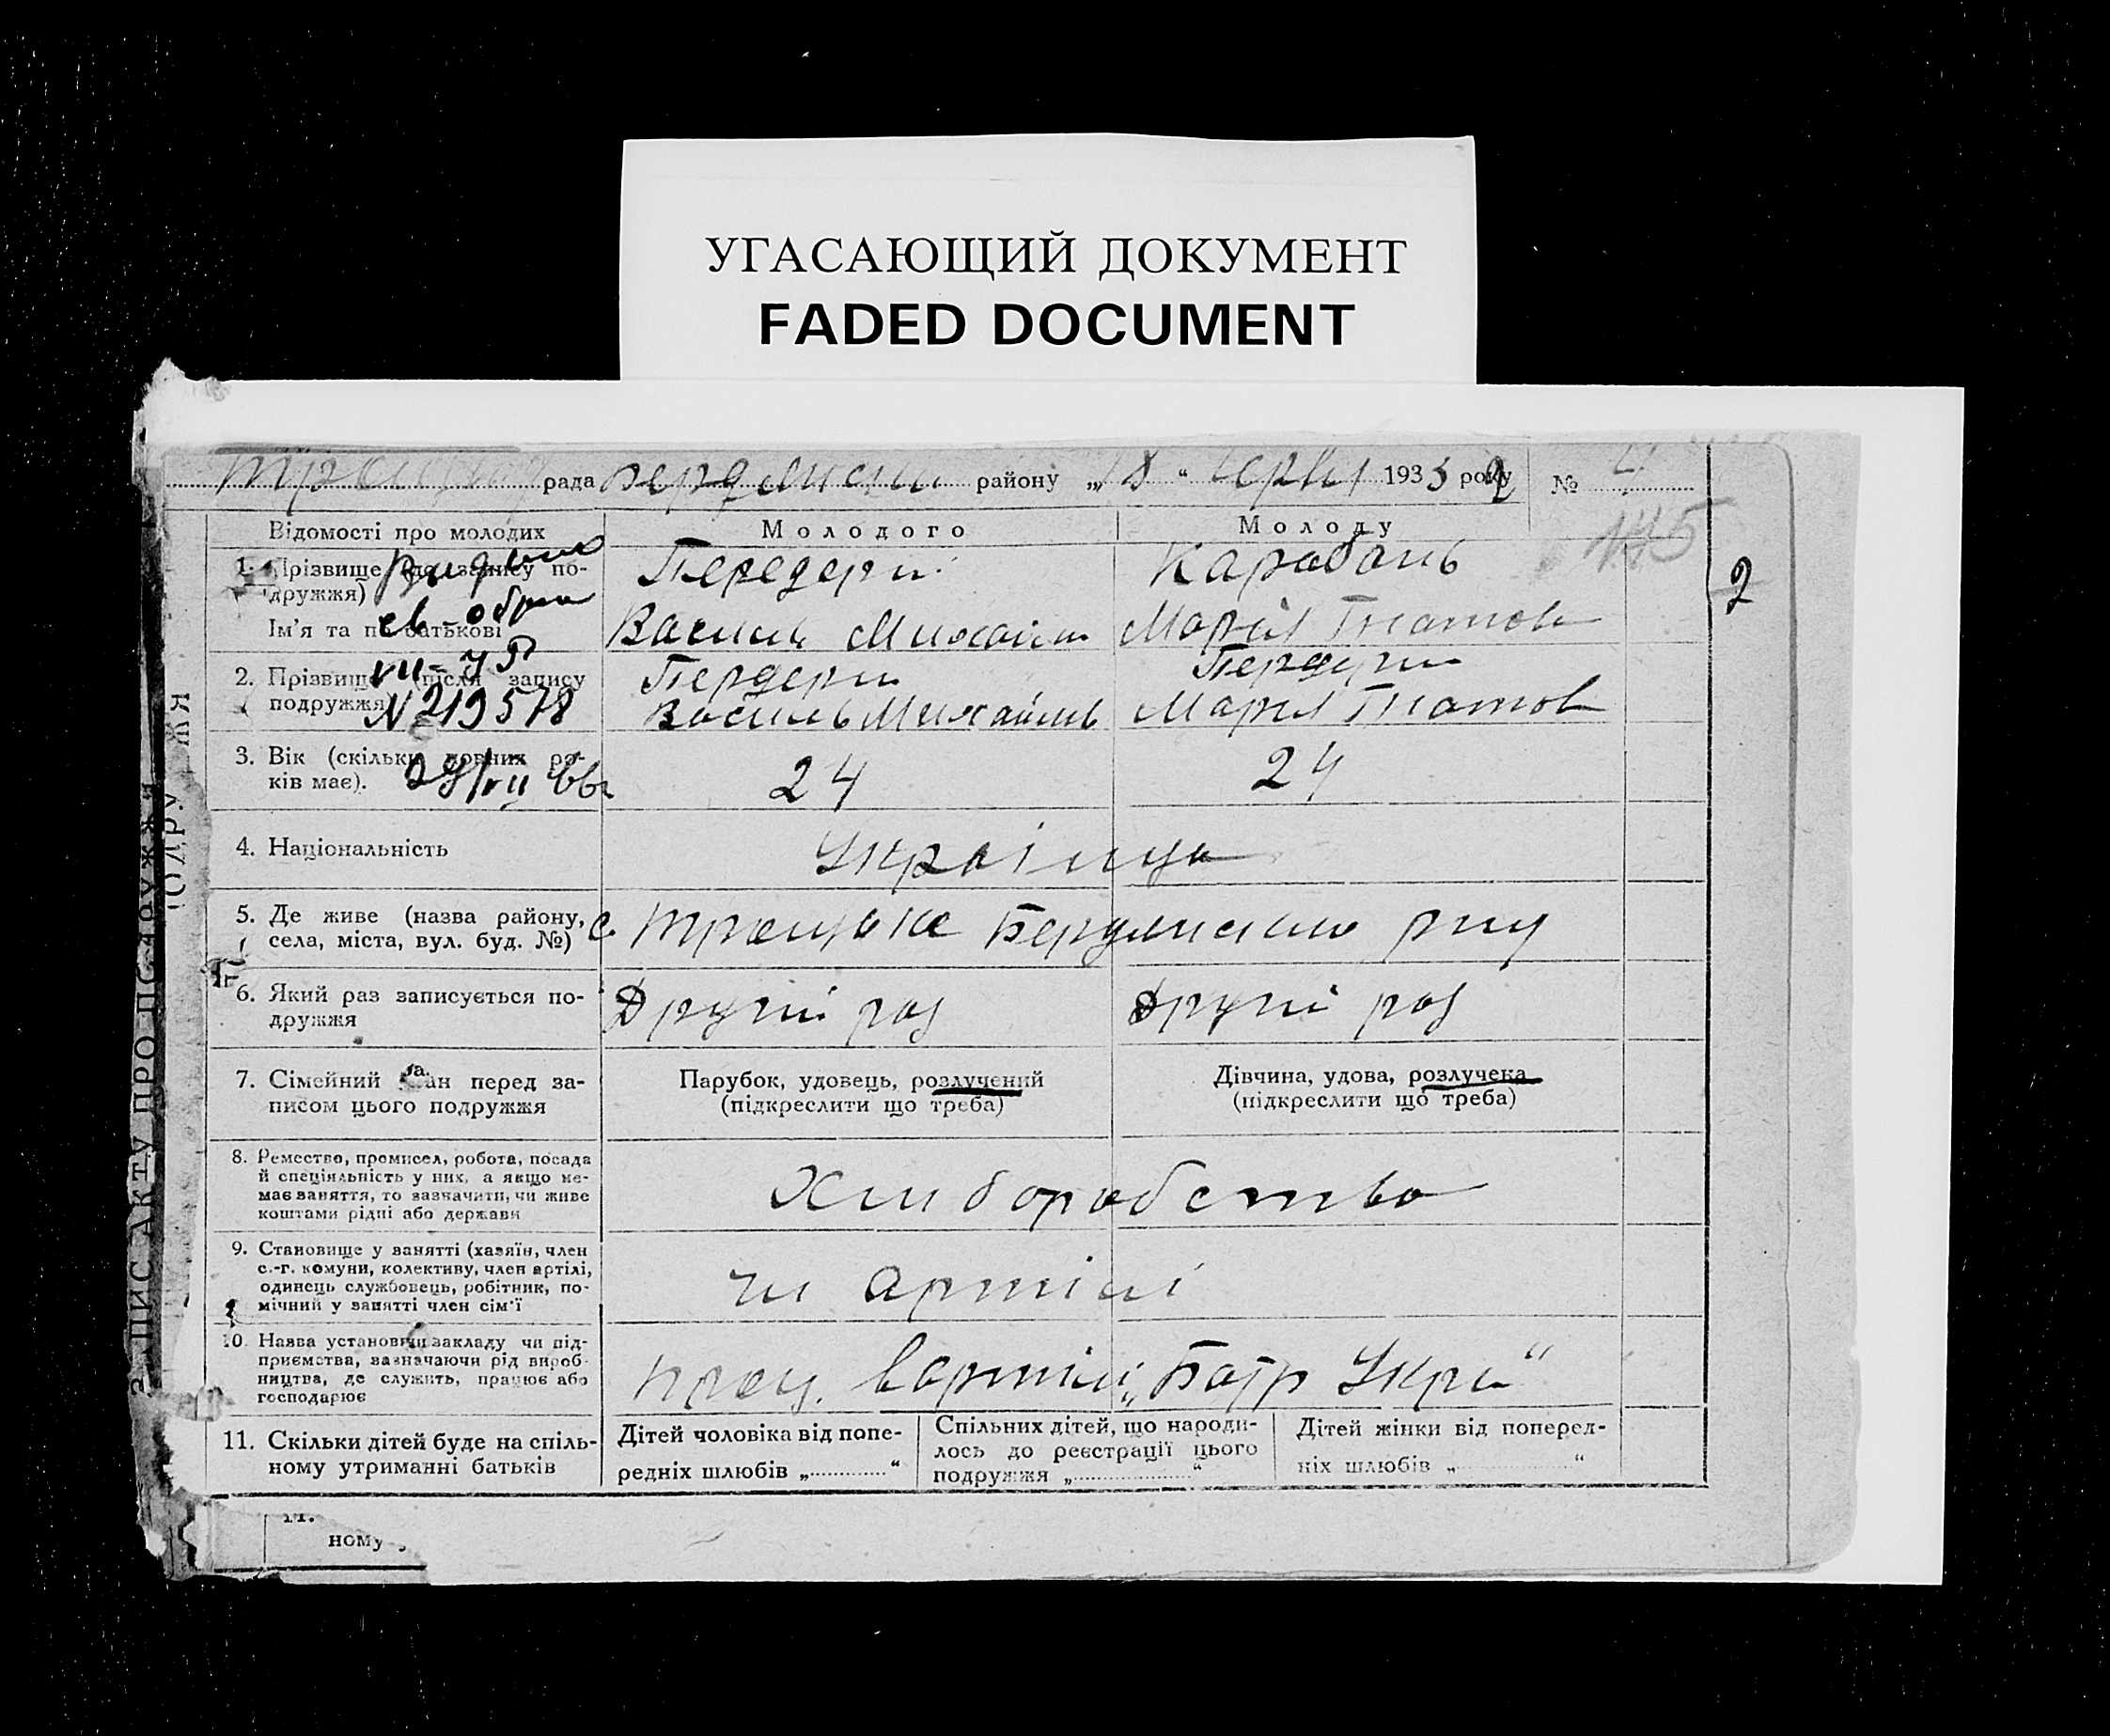 УГАСАЮЩИЙ ДОКУМЕНТ
FADED DOCUMENT
рада району „18 “ 1933 року №
145
2
Відомості про молодих Молодого Молоду
1. Прізвище (до запису по-
дружжя) Передерій Карабань
Ім'я та по батькові Василь Михайл Марія Гнатов
2. Прізвище (після запису
подружжя)
Василь Михайлів Марія Гнатов
видано
св-обра
VII-ЯР
N 219578
3. Вік (скільки повних ро-
ків має). 24 24
4. Національність Українці
5. Де живе (назва району,
села, міста, вул. буд. №) с.
6. Який раз записується по-
дружжя Другий раз Другий раз
7. Сімейний стан перед за-
писом цього подружжя
Парубок, удовець, розлучений
(підкреслити що треба)
Дівчина, удова, розлучена
(підкреслити що треба)
8. Ремество, промисел, робота, посада
й спеціяльність у них, а якщо не-
має заняття, то зазначити, чи живе
коштами рідні або держави
Хліборобство
9. Становище у занятті (хазяїн, член
с.-г. комуни, колективу, член артілі,
одинець службовець, робітник, по-
мічний у занятті член сім'ї
чл артілі
10. Назва установи, закладу чи під-
приємства, зазначаючи рід вироб-
ництва, де служить, працює або
господарює
11. Скільки дітей буде на спіль-
ному утриманні батьків
Дітей чоловіка від попе-
редніх шлюбів „ “
Спільних дітей, що народи-
лось до реєстрації цього
подружжя „ “
Дітей жінки від поперед-
ніх шлюбів „ “
11.
ному
ЗАПИС АКТУ ПРО ПОДРУЖЖЯ